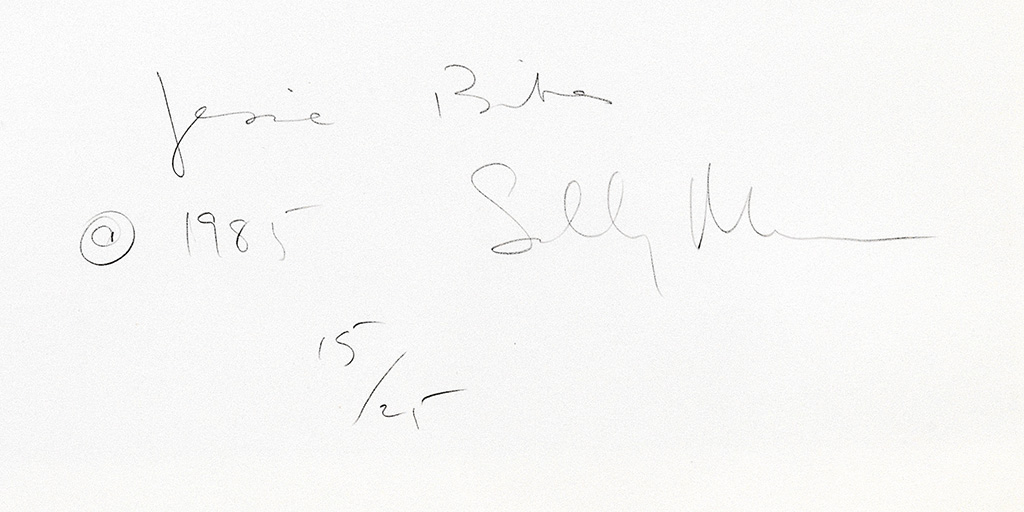 Jessie Bites
© 1985 Sally Mann
15/25